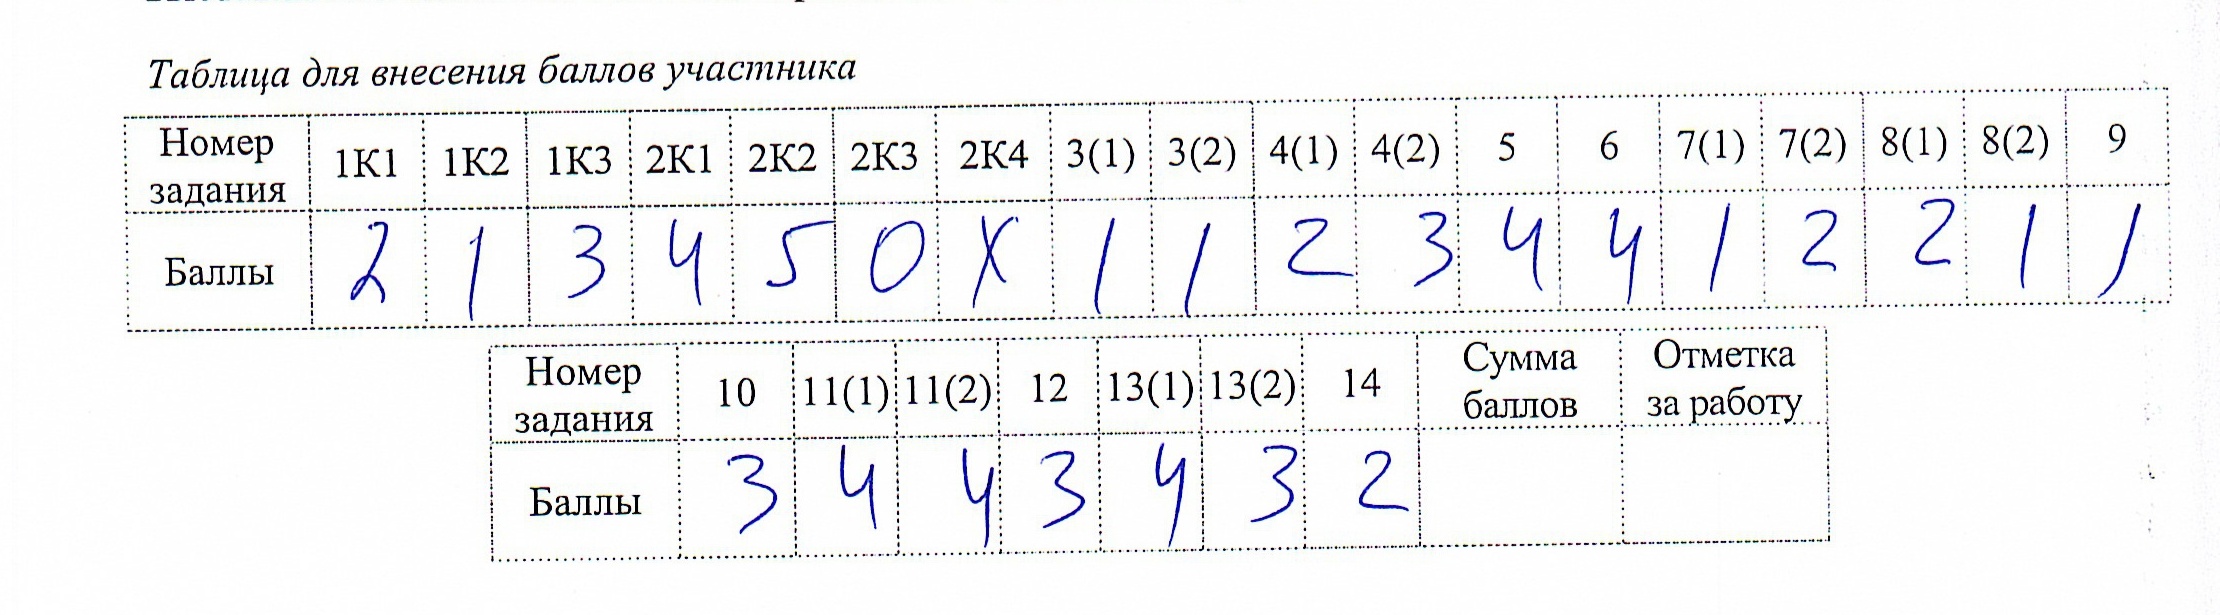 Таблица для внесения баллов участника
Номер задания 1К1 1К2 1К3 2К1 2К2 2К3 2К4 3(1) 3(2) 4(1) 4(2) 5 6 7(1) 7(2) 8(1) 8(2) 9
Баллы 2 1 3 4 5 0 X 1 1 2 3 4 4 1 2 2 1 1
Номер задания 10 11(1) 11(2) 12 13(1) 13(2) 14 Сумма баллов Отметка за работу
Баллы 3 4 4 3 4 3 2